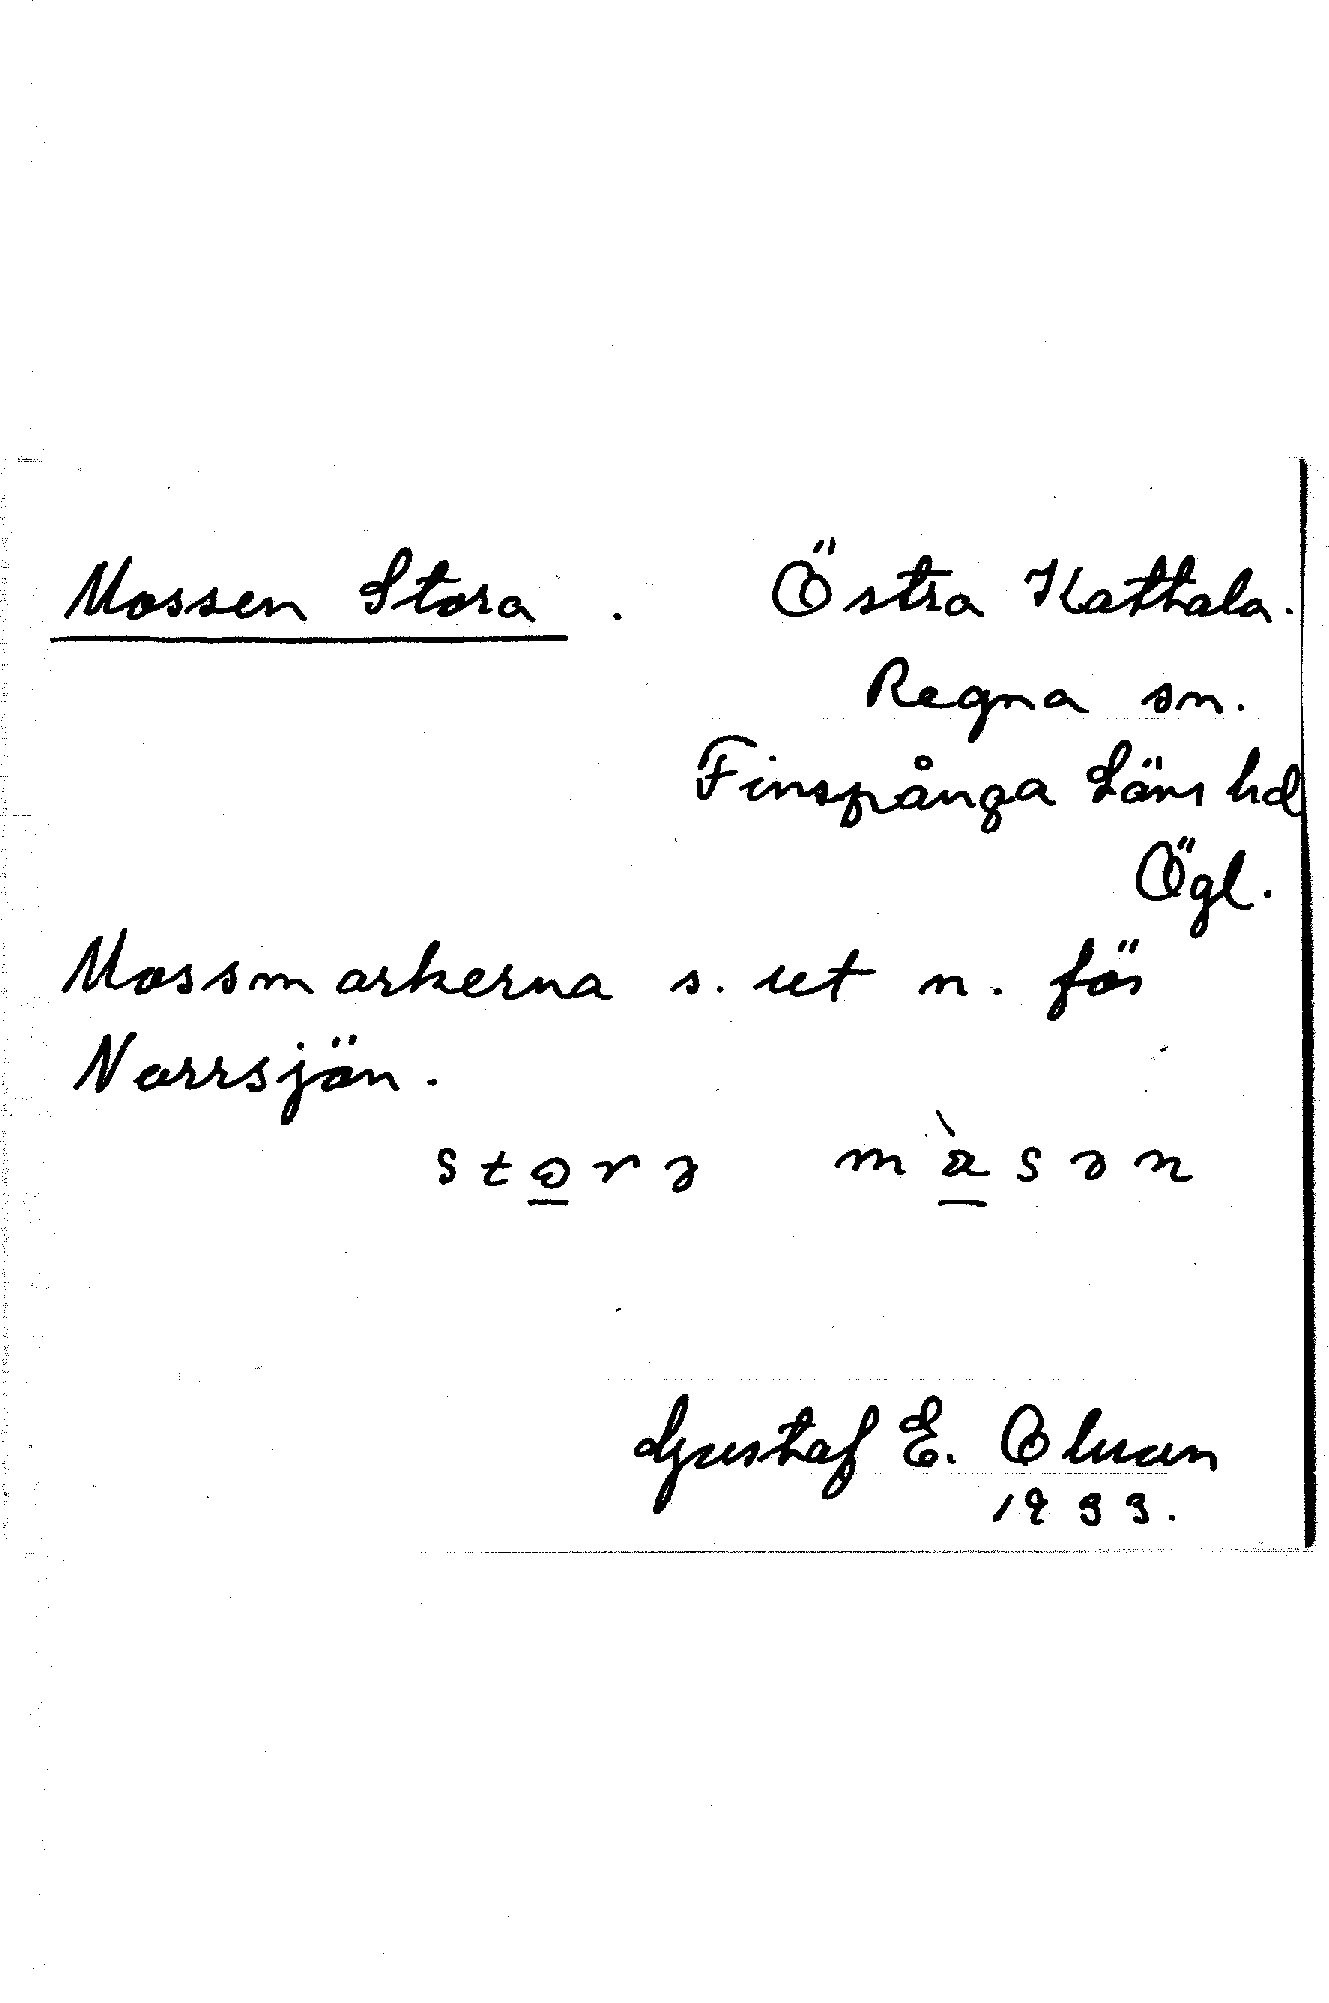 Mossen Stora . Östra Kathala.
Regna sn.
Finspånga Läns hd
Ögl.
Mossmarkerna s. ut n. för
Norrsjön.
Gustaf E.
1933.